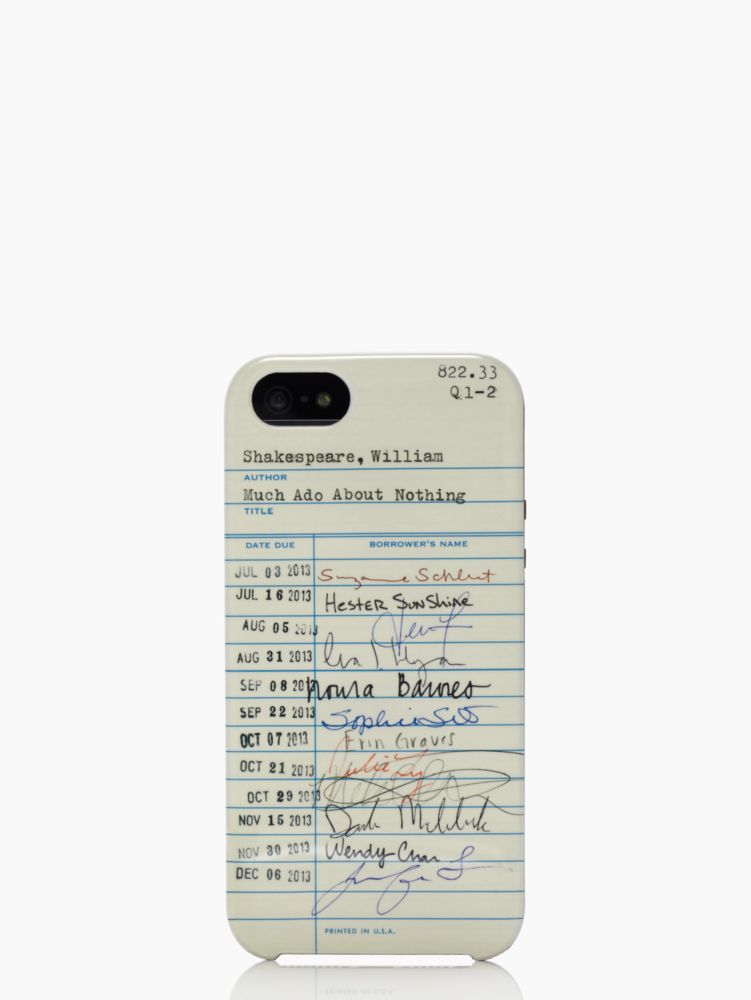 822.33
Q1-2
Shakespeare, William
AUTHOR
Much Ado About Nothing
TITLE
DATE DUE BORROWER'S NAME
JUL 03 2013 Suzanne
JUL 16 2013 HESTER SUNSHINE
AUG 05 2013
AUG 31 2013
SEP 08 2013 Noura Barnes
SEP 22 2013 Sophie
OCT 07 2013 Erin Graves
OCT 21 2013 Julia
OCT 29 2013
NOV 15 2013
NOV 30 2013 Wendy Chan
DEC 06 2013
PRINTED IN U.S.A.